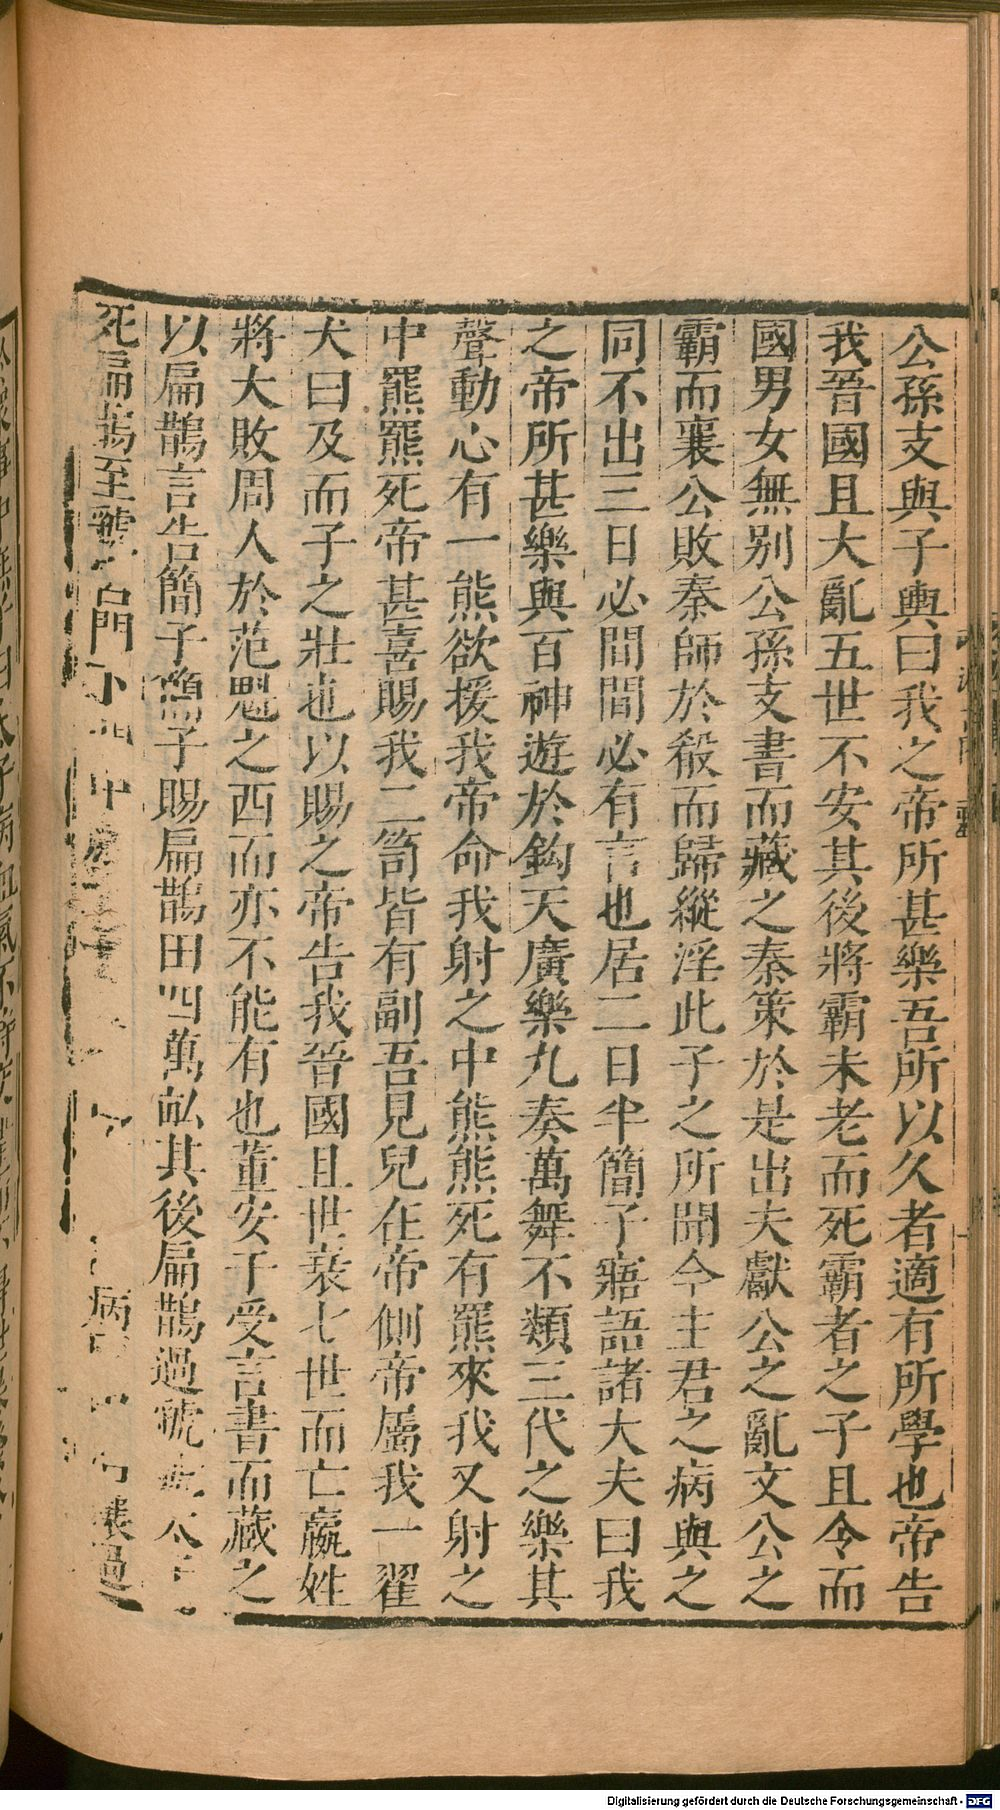 公孫支與子輿曰我之帝所甚樂吾所以久者適有所學也帝告
我晉國且大亂五世不安其後將霸未老而死霸者之子且令而
國男女無别公孫支書而藏之秦策於是出夫獻公之亂文公之
霸而襄公敗秦師於殽而歸縱淫此子之所聞今主君之病與之
同不出三日必間間必有言也居二日半簡子寤語諸大夫曰我
之帝所甚樂與百神遊於鈞天廣樂九奏萬舞不類三代之樂其
聲動心有一熊欲援我帝命我射之中熊熊死有羆來我又射之
中羆羆死帝甚喜賜我二笥皆有副吾見兒在帝側帝屬我一翟
犬曰及而子之壯也以賜之帝告我晉國且世衰七世而亡嬴姓
將大敗周人於范魁之西而亦不能有也董安于受言書而藏之
以扁鵲言告簡子簡子賜扁鵲田四萬畝其後扁鵲過虢
死扁鵲至虢門中病過
Digitalisierung gefördert durch die Deutsche Forschungsgemeinschaft - DFG